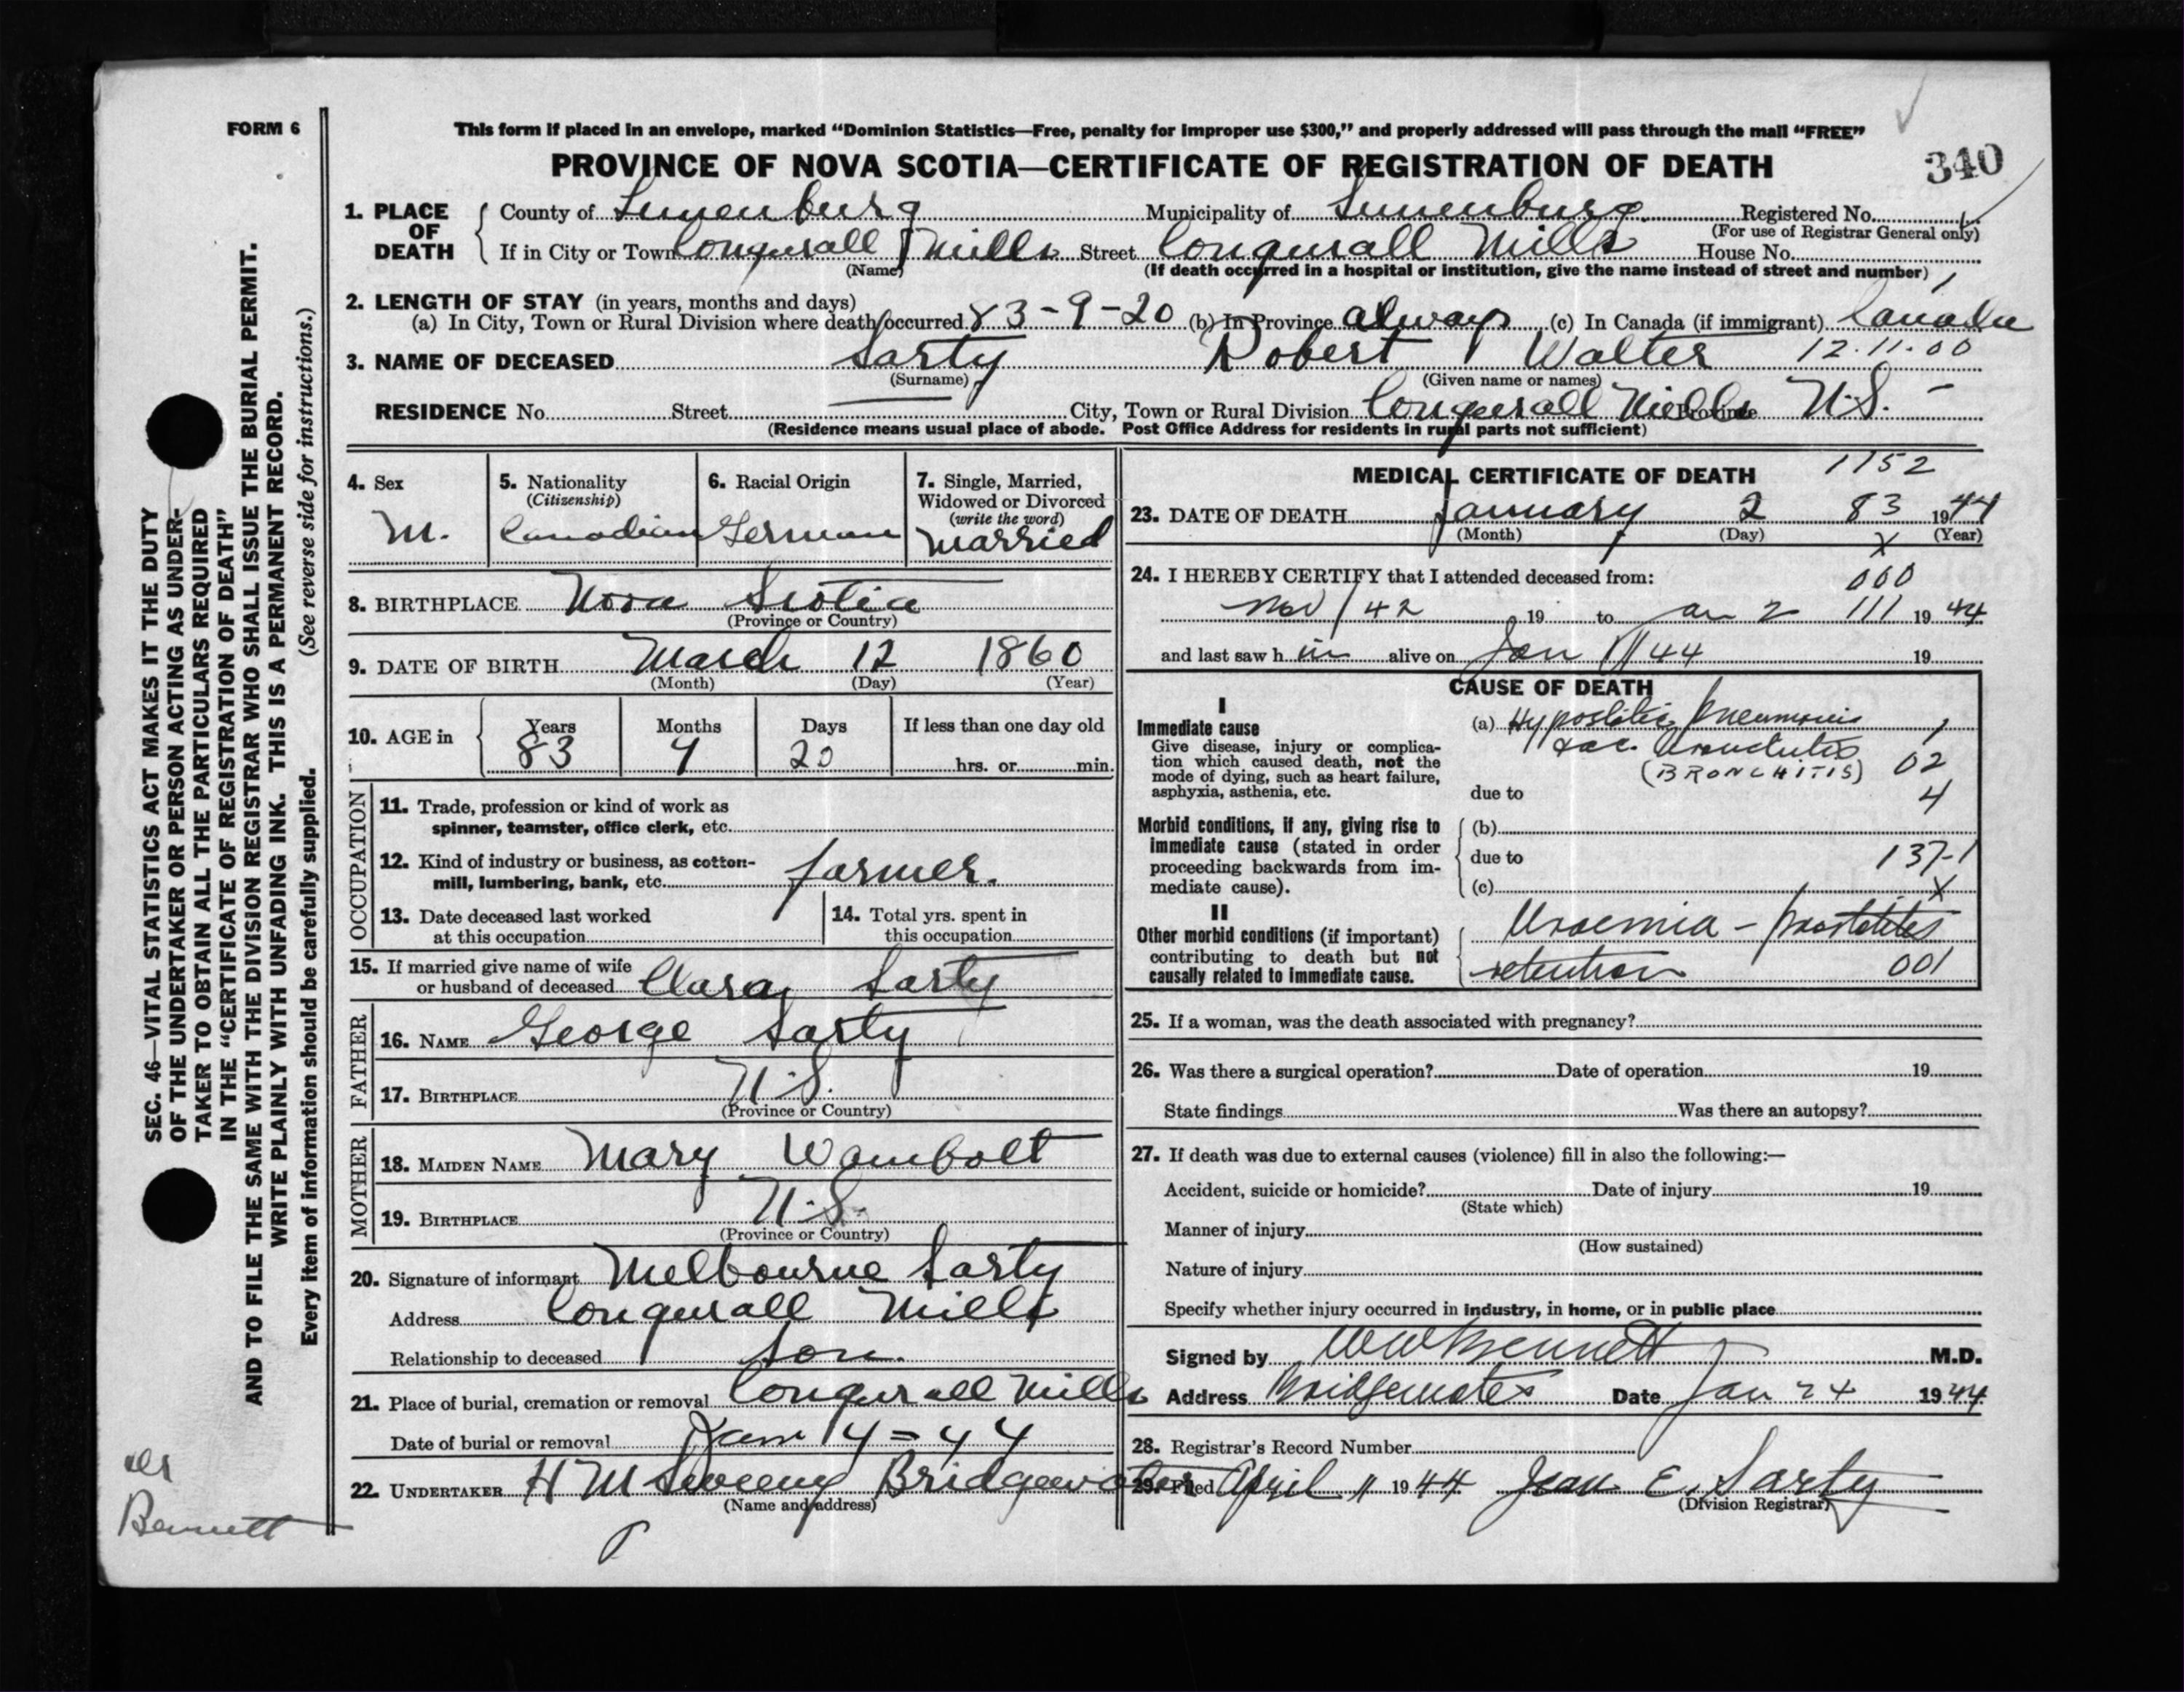 FORM 6
This form if placed in an envelope, marked "Dominion Statistics—Free, penalty for improper use $300," and properly addressed will pass through the mail "FREE"
PROVINCE OF NOVA SCOTIA—CERTIFICATE OF REGISTRATION OF DEATH
340
1. PLACE OF DEATH
County of Lunenburg Municipality of Lunenburg Registered No.
(For use of Registrar General only)
If in City or Town Conquerall Mills Street Conquerall Mills House No.
(Name) (If death occurred in a hospital or institution, give the name instead of street and number)
2. LENGTH OF STAY (in years, months and days)
(a) In City, Town or Rural Division where death occurred 83-9-20 (b) In Province always (c) In Canada (if immigrant) Canada
3. NAME OF DECEASED Sarty Robert Walter 12.11.00
(Surname) (Given name or names)
RESIDENCE No. Street City, Town or Rural Division Conquerall Mills Province N.S.
(Residence means usual place of abode. Post Office Address for residents in rural parts not sufficient)
4. Sex
M.
5. Nationality
(Citizenship)
Canadian
6. Racial Origin
German
7. Single, Married,
Widowed or Divorced
(write the word)
Married
8. BIRTHPLACE Nova Scotia
(Province or Country)
9. DATE OF BIRTH March 12 1860
(Month) (Day) (Year)
10. AGE in Years Months Days If less than one day old
83 9 20 hrs. or min.
OCCUPATION
11. Trade, profession or kind of work as
spinner, teamster, office clerk, etc.
12. Kind of industry or business, as cotton-
mill, lumbering, bank, etc. farmer.
13. Date deceased last worked
at this occupation
14. Total yrs. spent in
this occupation
15. If married give name of wife
or husband of deceased Clara Sarty
FATHER
16. NAME George Sarty
17. BIRTHPLACE N.S.
(Province or Country)
MOTHER
18. MAIDEN NAME Mary Wambolt
19. BIRTHPLACE N.S.
(Province or Country)
20. Signature of informant Melbourne Sarty
Address Conquerall Mills
Relationship to deceased Son.
21. Place of burial, cremation or removal Conquerall Mills
Date of burial or removal Jan 4-44
22. UNDERTAKER H M Sweeny Bridgewater
(Name and address)
MEDICAL CERTIFICATE OF DEATH 1152
23. DATE OF DEATH January 2 83 1944
(Month) (Day) X (Year)
24. I HEREBY CERTIFY that I attended deceased from: 000
Nov / 42 19 to Jan 2 111 1944
and last saw h im alive on Jan 1/44 19
CAUSE OF DEATH
I
Immediate cause
Give disease, injury or complica-
tion which caused death, not the
mode of dying, such as heart failure,
asphyxia, asthenia, etc.
(a) Hypostatic Pneumonia 1
Bronchitis 02
(BRONCHITIS)
due to 4
Morbid conditions, if any, giving rise to
immediate cause (stated in order
proceeding backwards from im-
mediate cause).
(b)
due to 137-1
(c) X
II
Other morbid conditions (if important)
contributing to death but not
causally related to immediate cause.
Uraemia - prostatites
retention 001
25. If a woman, was the death associated with pregnancy?
26. Was there a surgical operation? Date of operation 19
State findings Was there an autopsy?
27. If death was due to external causes (violence) fill in also the following:—
Accident, suicide or homicide? Date of injury 19
(State which)
Manner of injury
(How sustained)
Nature of injury
Specify whether injury occurred in industry, in home, or in public place
Signed by W W Bennett M.D.
Address Bridgewater Date Jan 24 1944
28. Registrar's Record Number
29. Filed April 11 1944 Jean E. Sarty
(Division Registrar)
SEC. 46—VITAL STATISTICS ACT MAKES IT THE DUTY
OF THE UNDERTAKER OR PERSON ACTING AS UNDER-
TAKER TO OBTAIN ALL THE PARTICULARS REQUIRED
IN THE "CERTIFICATE OF REGISTRATION OF DEATH"
AND TO FILE THE SAME WITH THE DIVISION REGISTRAR WHO SHALL ISSUE THE BURIAL PERMIT.
WRITE PLAINLY WITH UNFADING INK. THIS IS A PERMANENT RECORD.
Every item of information should be carefully supplied. (See reverse side for instructions.)
Bennett